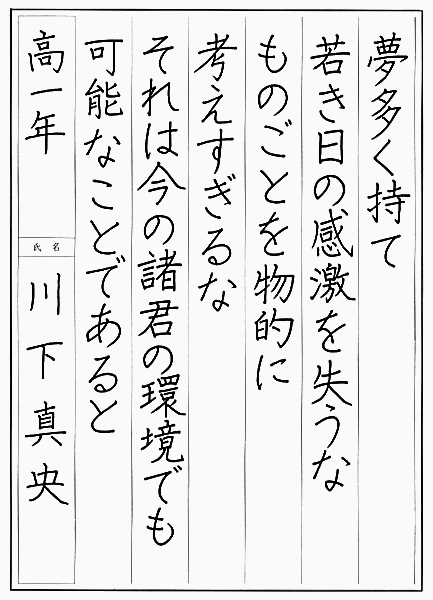 夢多く持て
若き日の感激を失うな
ものごとを物的に
考えすぎるな
それは今の諸君の環境でも
可能なことであると
高一年
氏名
川下真央